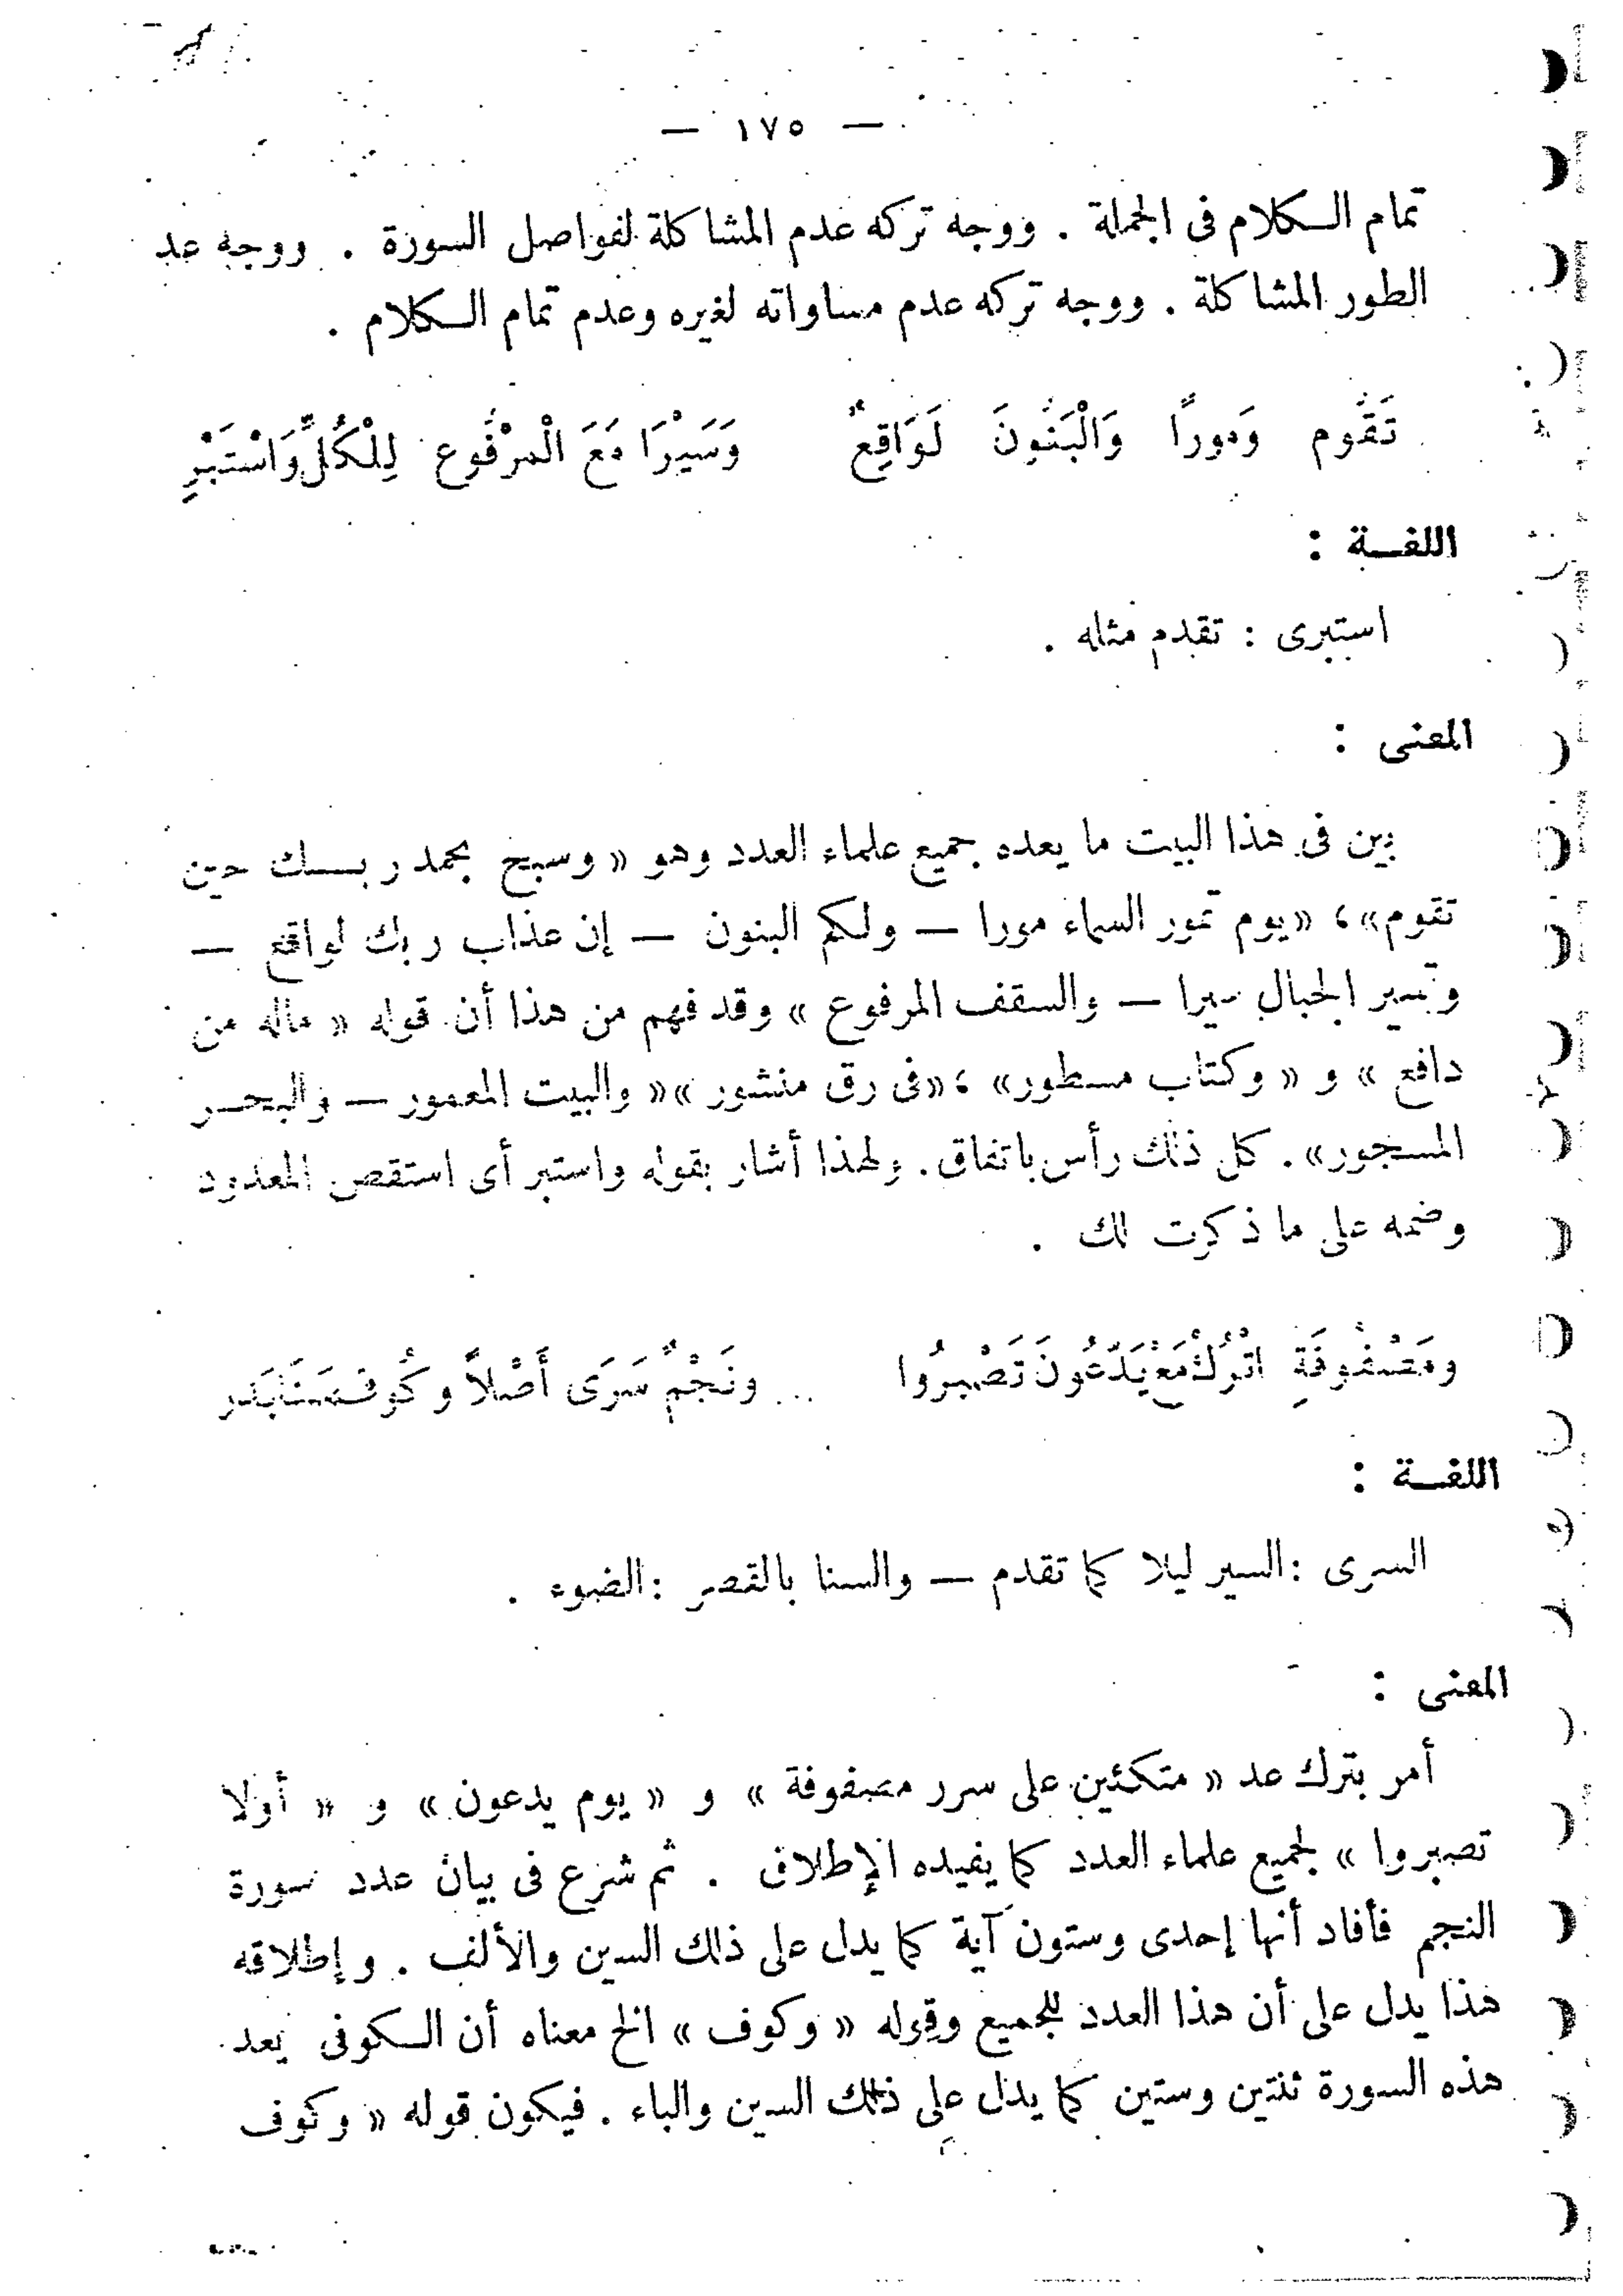 — ١٧٥ —
تمام الكلام فى الجملة . ووجه تركه عدم المشاكلة لفواصل السورة . ووجه عد
الطور المشاكلة . ووجه تركه عدم مساواته لغيره وعدم تمام الكلام .
تَقُوم وَمورًا وَالْبَنُونَ لَوَاقِعٌ وَسَيْرًا مَعَ الْمرْفُوع لِلْكُلِّ وَاسْتَبْرِ
اللغة :
استبرى : تقدم مثله .
المعنى :
بين فى هذا البيت ما يعده جميع علماء العدد وهو « وسبح بحمد ربك حين
تقوم» ، «يوم تمور السماء مورا — ولكم البنون — إن عذاب ربك لواقع —
وتسير الجبال سيرا — والسقف المرفوع » وقد فهم من هذا أن قوله « ماله من
دافع » و « وكتاب مسطور» ، «فى رق منشور »« والبيت المعمور — والبحر
المسجور» . كل ذلك رأس باتفاق . ولهذا أشار بقوله واستبر أى استقص المعدود
وضمه على ما ذكرت لك .
ومَصْفُوفَةِ اتْرُكْ مَعْ يَدَعُّونَ تَصْبِرُوا ونَجْمٌ سَرَى أَصْلاً وكُوف سَنَا بَدر
اللغة :
السرى : السير ليلا كما تقدم — والسنا بالقصر : الضوء .
المعنى :
أمر بترك عد « متكئين على سرر مصفوفة » و « يوم يدعون » و « أولا
تصبروا » لجميع علماء العدد كما يفيده الإطلاق . ثم شرع فى بيان عدد سورة
النجم فأفاد أنها إحدى وستون آية كما يدل على ذلك السين والألف . وإطلاقه
هذا يدل على أن هذا العدد للجميع وقوله « وكوف » الخ معناه أن الكوفى يعد
هذه السورة ثنتين وستين كما يدل على ذلك السين والباء . فيكون قوله « وكوف